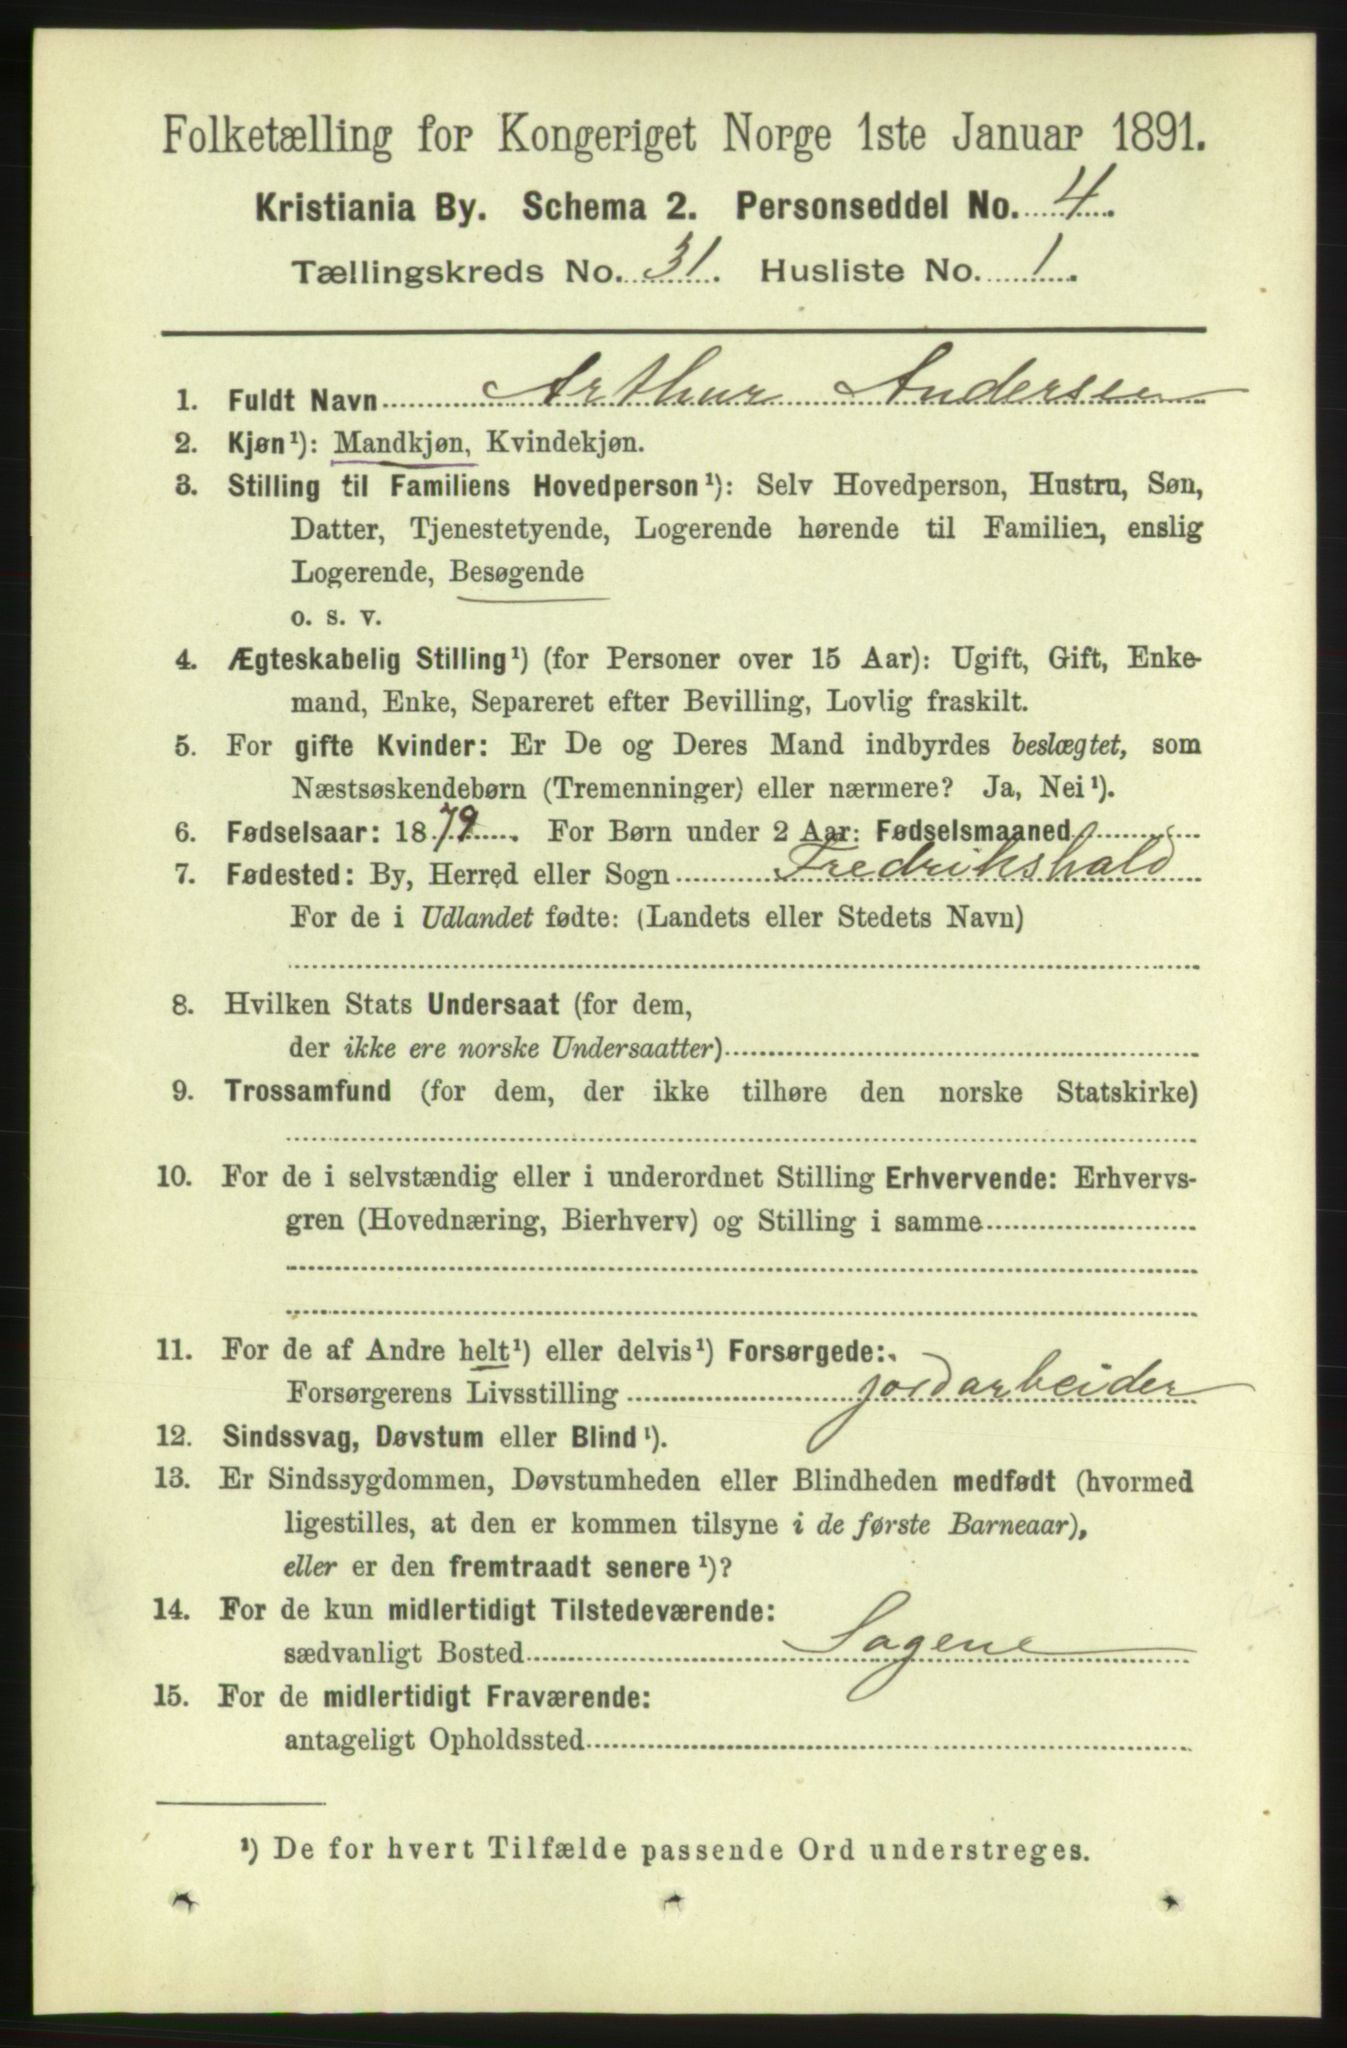 Folketælling for Kongeriget Norge 1ste Januar 1891.
Kristiania By. Schema 2. Personseddel No. 4.
Tællingskreds No. 31. Husliste No. 1.
1. Fuldt Navn Arthur Andersen
2. Kjøn¹): Mandkjøn, Kvindekjøn.
3. Stilling til Familiens Hovedperson¹): Selv Hovedperson, Hustru, Søn,
Datter, Tjenestetyende, Logerende hørende til Familien, enslig
Logerende, Besøgende
o. s. v.
4. Ægteskabelig Stilling¹) (for Personer over 15 Aar): Ugift, Gift, Enke-
mand, Enke, Separeret efter Bevilling, Lovlig fraskilt.
5. For gifte Kvinder: Er De og Deres Mand indbyrdes beslægtet, som
Næstsøskendebørn (Tremenninger) eller nærmere? Ja, Nei¹).
6. Fødselsaar: 1879. For Børn under 2 Aar: Fødselsmaaned
7. Fødested: By, Herred eller Sogn Fredrikshald
For de i Udlandet fødte: (Landets eller Stedets Navn)
8. Hvilken Stats Undersaat (for dem,
der ikke ere norske Undersaatter)
9. Trossamfund (for dem, der ikke tilhøre den norske Statskirke)
10. For de i selvstændig eller i underordnet Stilling Erhvervende: Erhvervs-
gren (Hovednæring, Bierhverv) og Stilling i samme
11. For de af Andre helt¹) eller delvis¹) Forsørgede:
Forsørgerens Livsstilling jordarbeider
12. Sindssvag, Døvstum eller Blind¹).
13. Er Sindssygdommen, Døvstumheden eller Blindheden medfødt (hvormed
ligestilles, at den er kommen tilsyne i de første Barneaar),
eller er den fremtraadt senere¹)?
14. For de kun midlertidigt Tilstedeværende:
sædvanligt Bosted Sagene
15. For de midlertidigt Fraværende:
antageligt Opholdssted
¹) De for hvert Tilfælde passende Ord understreges.